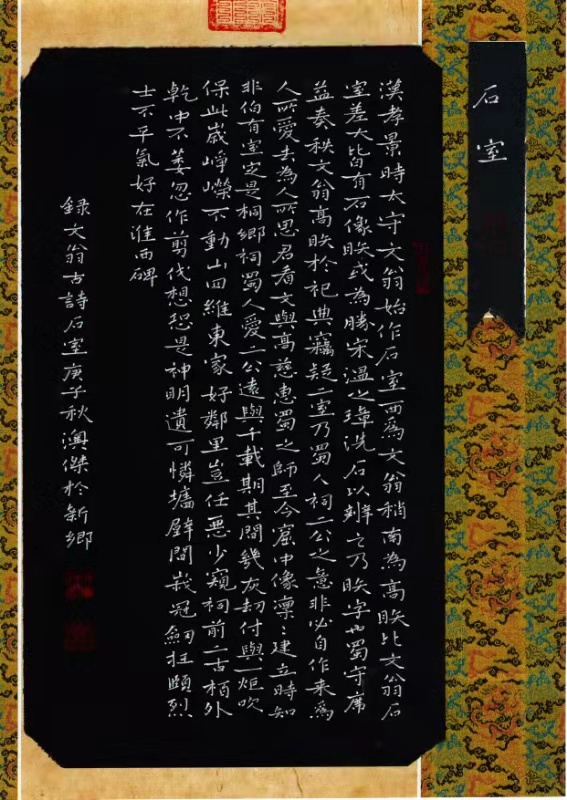 石室
漢孝景時太守文翁始作石室西爲文翁稍南為高眹比文翁石
室差大皆有石像眹或為勝宋溫之璋洗石以辨之乃眹字也蜀守席
益奏秩文翁高眹於祀典竊疑二室乃蜀人祠二公之意非必自作来為
人所愛去為人所思君看文與高慈惠蜀之師至今窟中像凛々建立時知
非伯有室定是桐鄉祠蜀人愛二公遠與千載期其間幾灰劫付與炬吹
保此嵗崢嶸不動山四維東家好鄰里豈任惡少窺祠前二古栢外
乾中不萎忽作剪伐想恐是神明遺可憐墻壁間峩冠劒拄頤烈
士不平氣好在淮西碑
錄文翁古詩石室庚子秋澳傑於新鄉